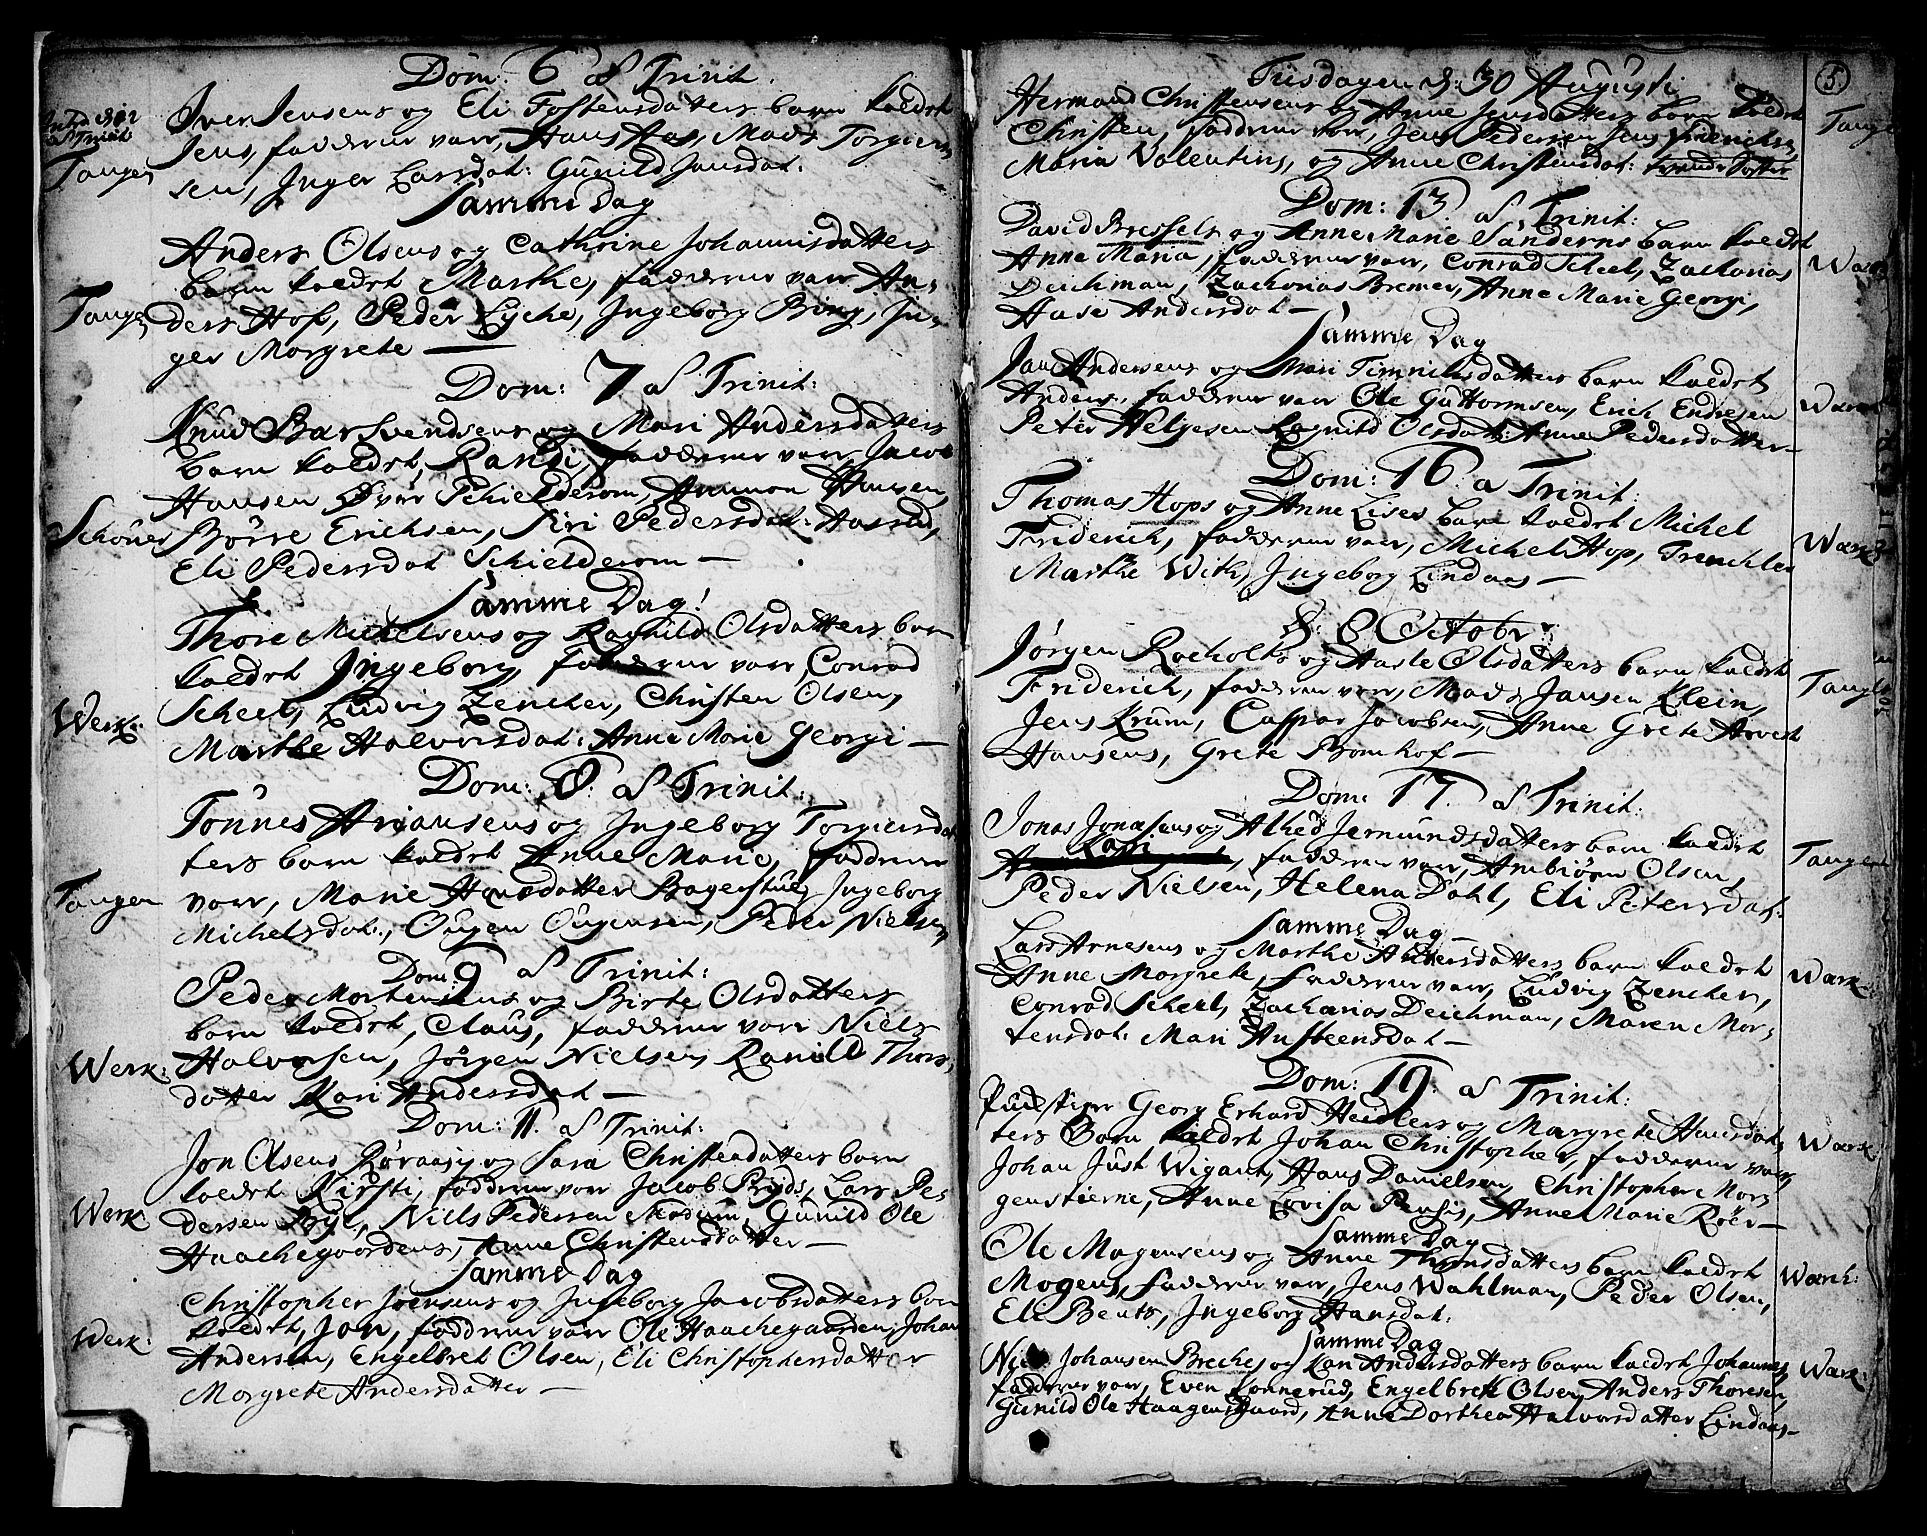 Dom: 6 af Trinit:
Iver Jensens og Eli Tostensdatters barn kaldet
Tangen
Jens, fadderne varr, Hans Has, Mads Torgier-
sen, Inger Larsdat: Gunild Jansdat:
Samme Dag
Anders Olsens og Cathrine Johannisdatters
Tangen
barn kaldet Marthe, fadderne varr An-
ders Hof, Peder Lyche, Ingeborg Bing, In-
ger Morgrete —
Dom: 7 af Trinit:
Knud Bar Svendsens og Mari Andersdatters
barn kaldet Randi, fadderne varr Jacob
Hansen Øvre Schielderom, Hansen,
Schouer
Børre Erichsen, Siri Pedersdat: Hassel,
Eli Pedersdat Schielderom —
Samme Dag!
Thore Michelsens og Ragnild Olsdatters barn
kaldet Ingeborg, fadderne varr, Conrad
Werk:
Scheel, Ludvig Zencher, Christen Olsen,
Marthe Halvorsdat: Anne Marie Georgi —
Dom: 8. af Trinit:
Tønnes Ariansens og Ingeborg Torgiersdat
ters barn kaldet Anne Marie, fadderne
Tangen
varr, Marie Hansdatter Bagerstue, Ingeborg
Michelsdat:, Ougen Ougensen, Peder Nielsen
Dom: 9 af Trinit:
Peder Mortensens og Birte Olsdatters
barn kaldet, Claus, fadderne varr Niels
Werk:
Halvorsen, Jørgen Nielsen, Ranild Thors-
datter Kari Andersdat —
Dom: 11. af Trinit:
Jon Olsens Røraasy og Sara Christensdatters barn
kaldet Kirsti, fadderne varr Jacob Pryds, Lars Pe-
Werk
dersen Bye, Niels Pedersen Modum, Gunild Ole
Haachegaardens, Anne Christensdatter —
Samme Dag
Christopher Joensens og Ingeborg Jacobsdatters barn
Werk:
kaldet, Jon, fadderne varr Ole Haachegaarden, Johan
Andersen, Engelbret Olsen, Eli Christophersdatter
Morgrete Andersdatter —
5.
Tiisdagen d: 30 Augusti
Hermand Christensens og Anne Jensdatters barn kaldet
Tangen
Christen, fadderne varr, Jens Pedersen Jens Friderichsen,
Maria Valentins, og Anne Christensdat:
Dom: 13. af Trinit:
David Bressels og Anne Marie Sanderns barn kaldet
Anna Maria, fadderne varr, Conrad Scheel, Zacharias
Wærk
Deichman, Zacharias Bremer, Anne Marie Georgi,
Aase Andersdat —
Samme Dag
Jan Andersens og Mari datters barn kaldet
Wærk
Anders, fadderne varr Ole Guttormsen, Erich Endresen
Peter Helgesen Ragnild Olsdat: Anne Pedersdatter —
Dom: 16. a Trinit:
Thomas Hops og Anne Lises barn kaldet Michel
Wærk
Friderich, fadderne varr, Michel Hop,
Marthe With, Ingeborg Lindaas —
d: 8 Octobr:
Jørgen Rocholts og Aaste Olsdatters barn kaldet
Friderich, fadderne varr, Mads Jansen Klein,
Jens Krum, Caspar Jacobsen, Anne Grete Arvedt
Hansens, Grete Bomhof —
Dom: 17. af Trinit:
Jonas Jonasens og Alhed Jermundsdatters barn kaldet
Kari
Tangen
fadderne varr, Ambiørn Olsen,
Peder Nielsen, Helena Dahl, Eli Petersdat:
Samme Dag —
Lars Arnesens og Marthe Andersdatters barn kaldet
Wærk:
Anne Morgrete, fadderne varr, Ludvig Zencher,
Conrad Scheel, Zacharias Deichman, Maren Mor-
tensdat: Mari Austeensdat —
Dom: 19. af Trinit:
Georg Erhard Heidlers og Margrete Hansdat-
Wærk:
ters Barn kaldet Johan Christopher, fadderne varr
Johan Just Wigant, Hans Danielsen, Christopher Mor-
genstierne, Anne Lovisa Pensis, Anne Marie Røer —
Samme Dag
Ole Mogensens og Anne Thorsdatters barn kaldet
Wærk:
Mogens, fadderne varr, Jens Wahlman, Peder Olsen,
Eli Bents, Ingeborg Hansdat:
Samme Dag
Johansen Breches og Kari Andersdatters barn kaldet Johannes
Wærk:
fadderne varr, Even Konnerud, Engelbreth Olsen, Anders Thoresen,
Gunild Ole Haagensgaard, Anne Dorthea Halvorsdatter Lindaas —